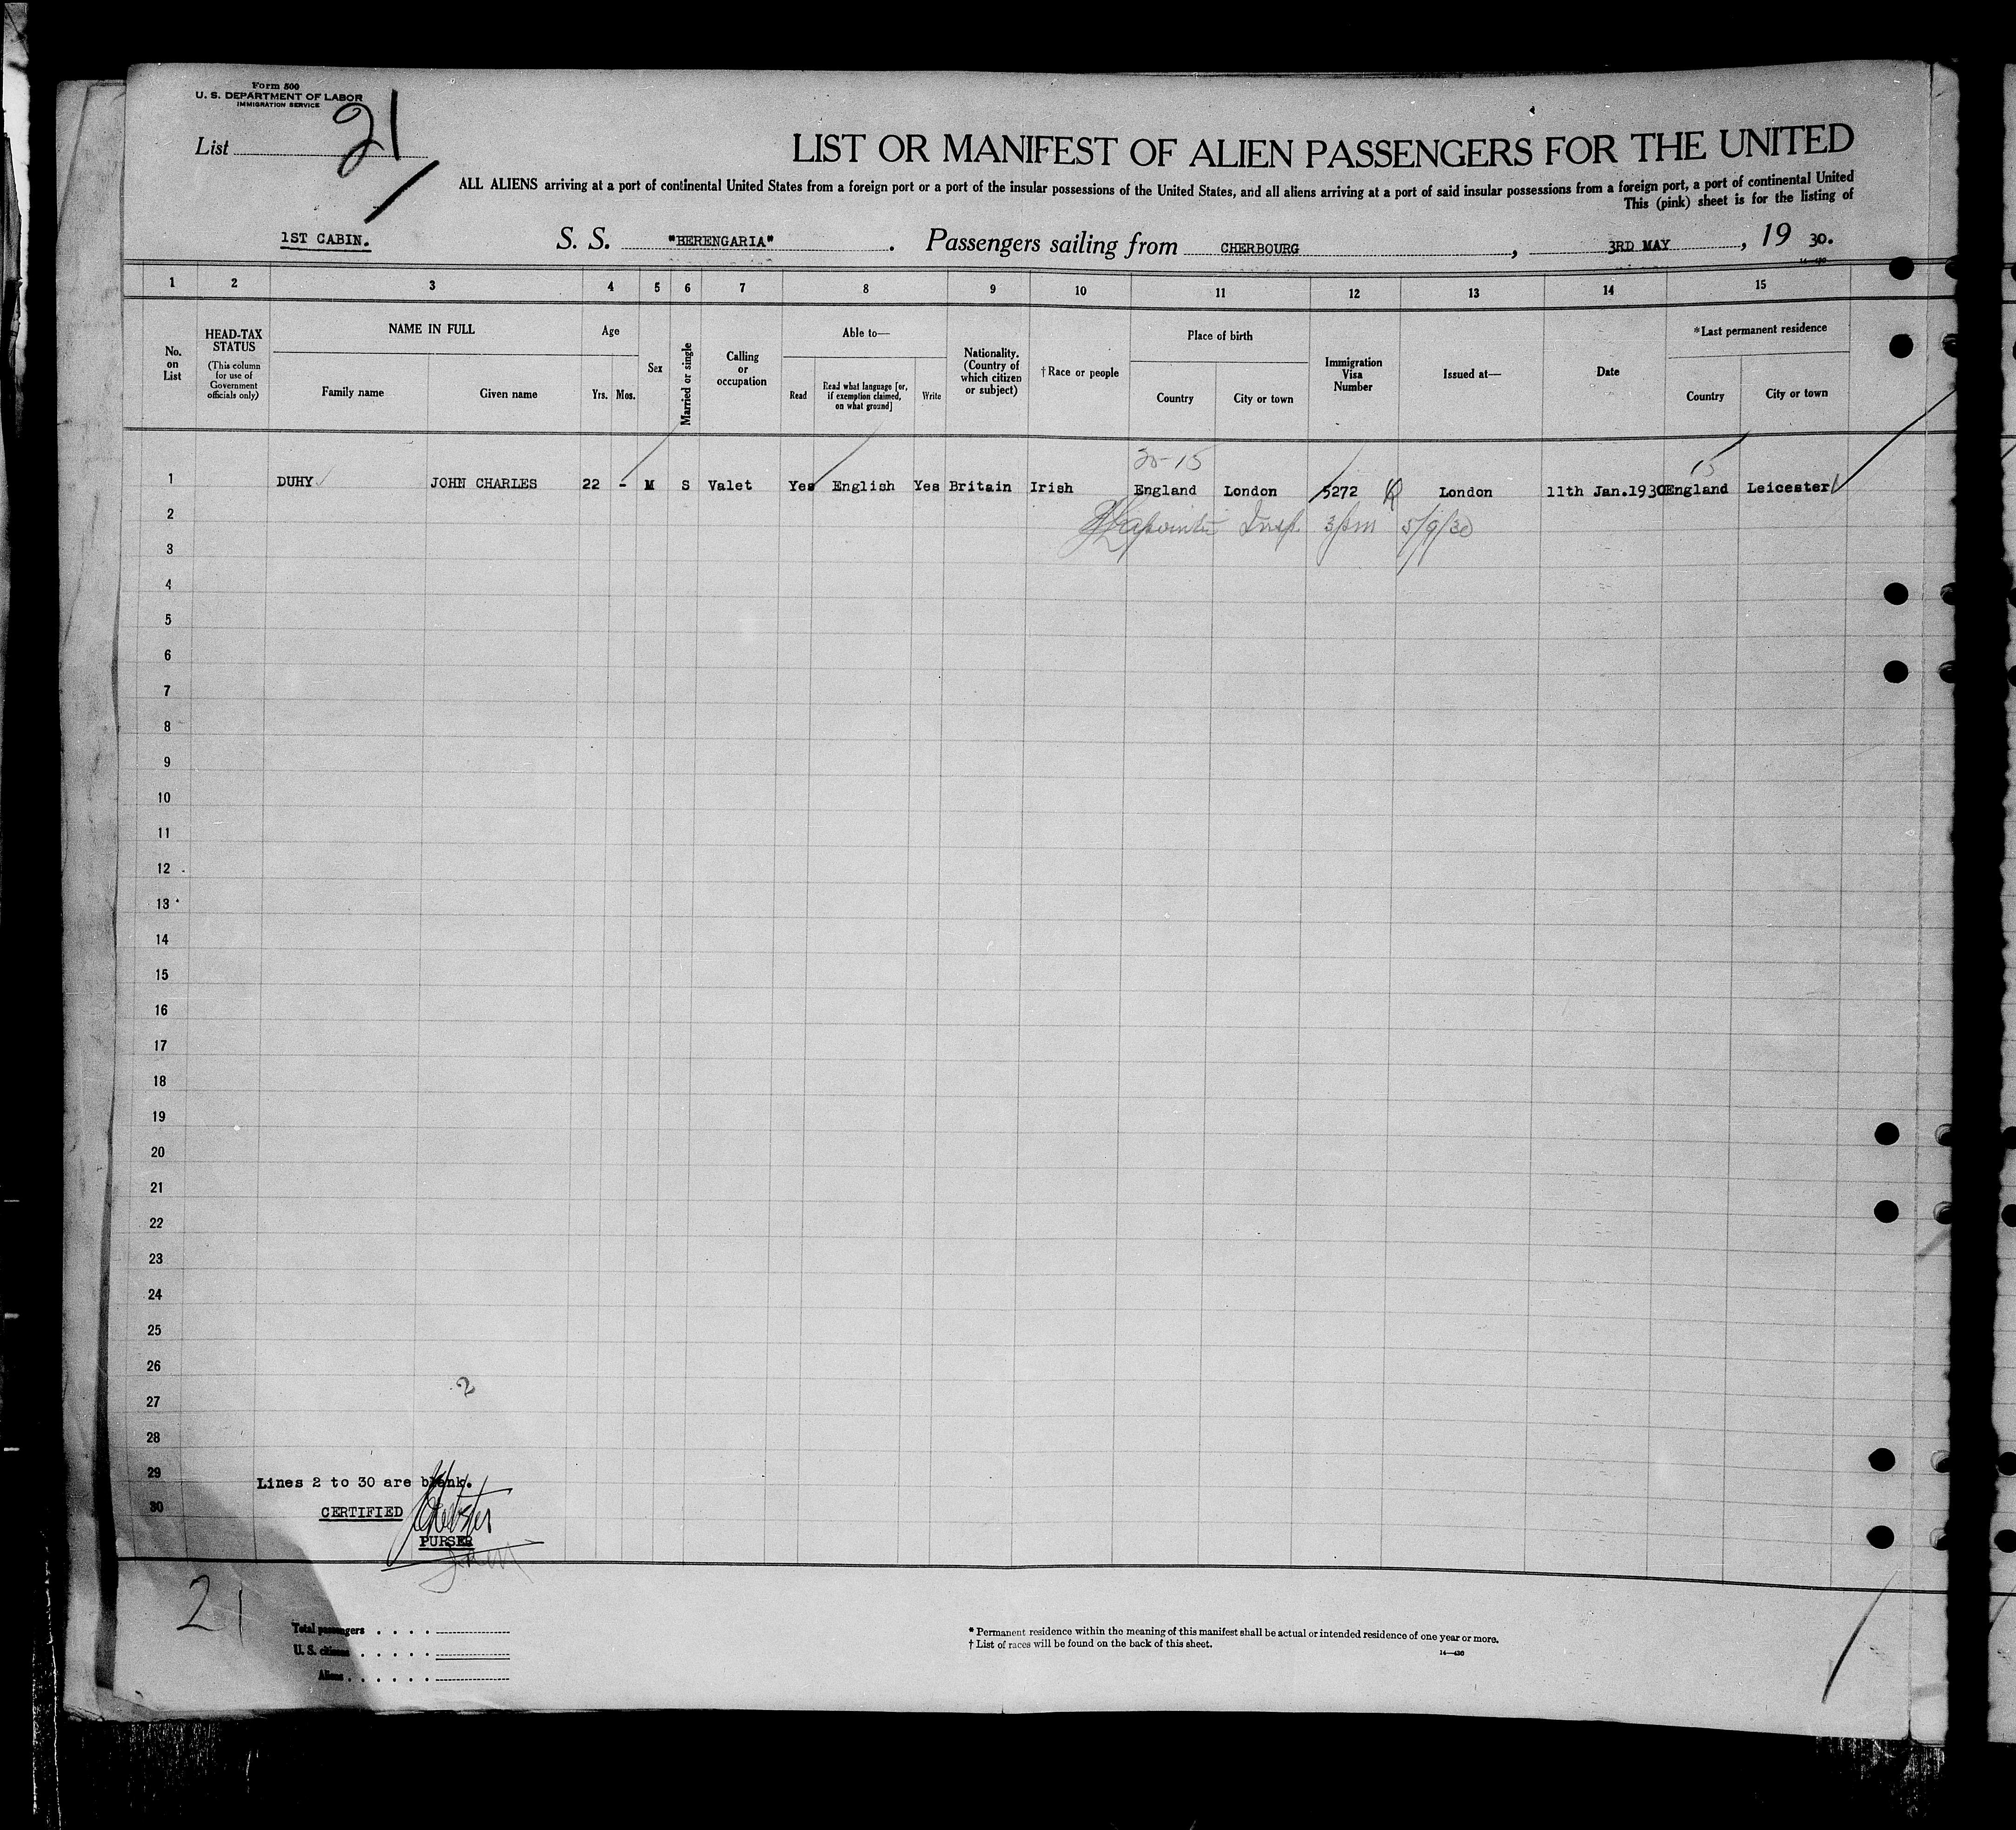 Form 500
U. S. DEPARTMENT OF LABOR
IMMIGRATION SERVICE
List 21
LIST OR MANIFEST OF ALIEN PASSENGERS FOR THE UNITED
ALL ALIENS arriving at a port of continental United States from a foreign port or a port of the insular possessions of the United States, and all aliens arriving at a port of said insular possessions from a foreign port, a port of continental United
This (pink) sheet is for the listing of
1ST CABIN. S. S. "BERENGARIA". Passengers sailing from CHERBOURG, 3RD MAY, 19 30.
14—430
1 2 3 4 5 6 7 8 9 10 11 12 13 14 15
No. on List
HEAD-TAX STATUS
(This column for use of Government officials only)
NAME IN FULL
Family name
Given name
Age
Yrs. Mos.
Sex
Married or single
Calling or occupation
Able to—
Read
Read what language [or, if exemption claimed, on what ground]
Write
Nationality. (Country of which citizen or subject)
†Race or people
Place of birth
Country
City or town
Immigration Visa Number
Issued at—
Date
*Last permanent residence
Country
City or town
30-15
15
1 DUHY JOHN CHARLES 22 - M S Valet Yes English Yes Britain Irish England London 5272 R London 11th Jan.1930 England Leicester
2 Lapointe Insp. 3pm 5/9/30
3
4
5
6
7
8
9
10
11
12
13
14
15
16
17
18
19
20
21
22
23
24
25
26
2
27
28
29
Lines 2 to 30 are blank.
30
CERTIFIED
PURSER
21
Total passengers
U. S. citizens
Aliens
* Permanent residence within the meaning of this manifest shall be actual or intended residence of one year or more.
† List of races will be found on the back of this sheet.
14—430